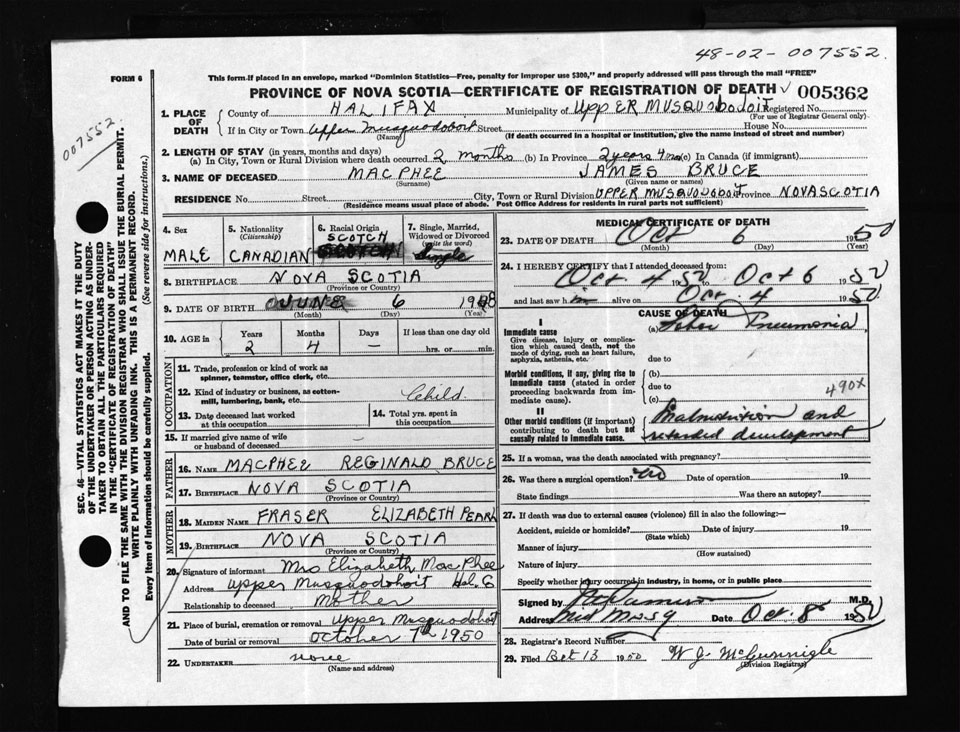 48-02-007552
FORM 6
This form if placed in an envelope, marked "Dominion Statistics—Free, penalty for improper use $300," and properly addressed will pass through the mail "FREE"
PROVINCE OF NOVA SCOTIA—CERTIFICATE OF REGISTRATION OF DEATH 005362
007552
SEC. 46—VITAL STATISTICS ACT MAKES IT THE DUTY
OF THE UNDERTAKER OR PERSON ACTING AS UNDER-
TAKER TO OBTAIN ALL THE PARTICULARS REQUIRED
IN THE "CERTIFICATE OF REGISTRATION OF DEATH"
AND TO FILE THE SAME WITH THE DIVISION REGISTRAR WHO SHALL ISSUE THE BURIAL PERMIT.
WRITE PLAINLY WITH UNFADING INK. THIS IS A PERMANENT RECORD.
Every item of Information should be carefully supplied. (See reverse side for instructions.)
1. PLACE OF DEATH
County of HALIFAX Municipality of UPPER MUSQUODOBOIT Registered No.
(For use of Registrar General only)
If in City or Town Upper Musquodoboit Street House No.
(Name) (If death occurred in a hospital or institution, give the name instead of street and number)
2. LENGTH OF STAY (in years, months and days)
(a) In City, Town or Rural Division where death occurred 2 months (b) In Province 2 years 4 mo (c) In Canada (if immigrant)
3. NAME OF DECEASED MACPHEE JAMES BRUCE
(Surname) (Given name or names)
RESIDENCE No. Street City, Town or Rural Division UPPER MUSQUODOBOIT Province NOVA SCOTIA
(Residence means usual place of abode. Post Office Address for residents in rural parts not sufficient)
4. Sex MALE
5. Nationality (Citizenship) CANADIAN
6. Racial Origin SCOTCH
7. Single, Married, Widowed or Divorced (write the word) Single
8. BIRTHPLACE NOVA SCOTIA
(Province or Country)
9. DATE OF BIRTH JUNE 6 1948
(Month) (Day) (Year)
10. AGE in Years Months Days If less than one day old
2 4 — hrs. or min.
OCCUPATION
11. Trade, profession or kind of work as
spinner, teamster, office clerk, etc.
12. Kind of industry or business, as cotton-
mill, lumbering, bank, etc. Child
13. Date deceased last worked
at this occupation
14. Total yrs. spent in
this occupation
15. If married give name of wife
or husband of deceased —
FATHER
16. NAME MACPHEE REGINALD BRUCE
17. BIRTHPLACE NOVA SCOTIA
(Province or Country)
MOTHER
18. MAIDEN NAME FRASER ELIZABETH PEARL
19. BIRTHPLACE NOVA SCOTIA
(Province or Country)
20. Signature of informant Mrs Elizabeth MacPhee
Address Upper Musquodoboit Hal. Co
Relationship to deceased Mother
21. Place of burial, cremation or removal Upper Musquodoboit
Date of burial or removal October 7th 1950
22. UNDERTAKER none
(Name and address)
MEDICAL CERTIFICATE OF DEATH
23. DATE OF DEATH Oct 6 1950
(Month) (Day) (Year)
24. I HEREBY CERTIFY that I attended deceased from:
Oct 4 1950 to Oct 6 1950
and last saw him alive on Oct 4 1950
CAUSE OF DEATH
I
Immediate cause
Give disease, injury or compli-
cation which caused death, not the
mode of dying, such as heart failure,
asphyxia, asthenia, etc.
(a) Lobar Pneumonia
due to
Morbid conditions, if any, giving rise to
immediate cause (stated in order
proceeding backwards from im-
mediate cause).
(b)
due to 490X
(c)
II
Other morbid conditions (if important)
contributing to death but not
causally related to immediate cause.
Malnutrition and
retarded development
25. If a woman, was the death associated with pregnancy?
26. Was there a surgical operation? No Date of operation 19
State findings Was there an autopsy?
27. If death was due to external causes (violence) fill in also the following:—
Accident, suicide or homicide? Date of injury 19
(State which)
Manner of injury
(How sustained)
Nature of injury
Specify whether injury occurred in industry, in home, or in public place
Signed by M.D.
Address Mid Musq Date Oct 8 1950
28. Registrar's Record Number
29. Filed Oct 13 1950 W J McGunnigle
(Division Registrar)